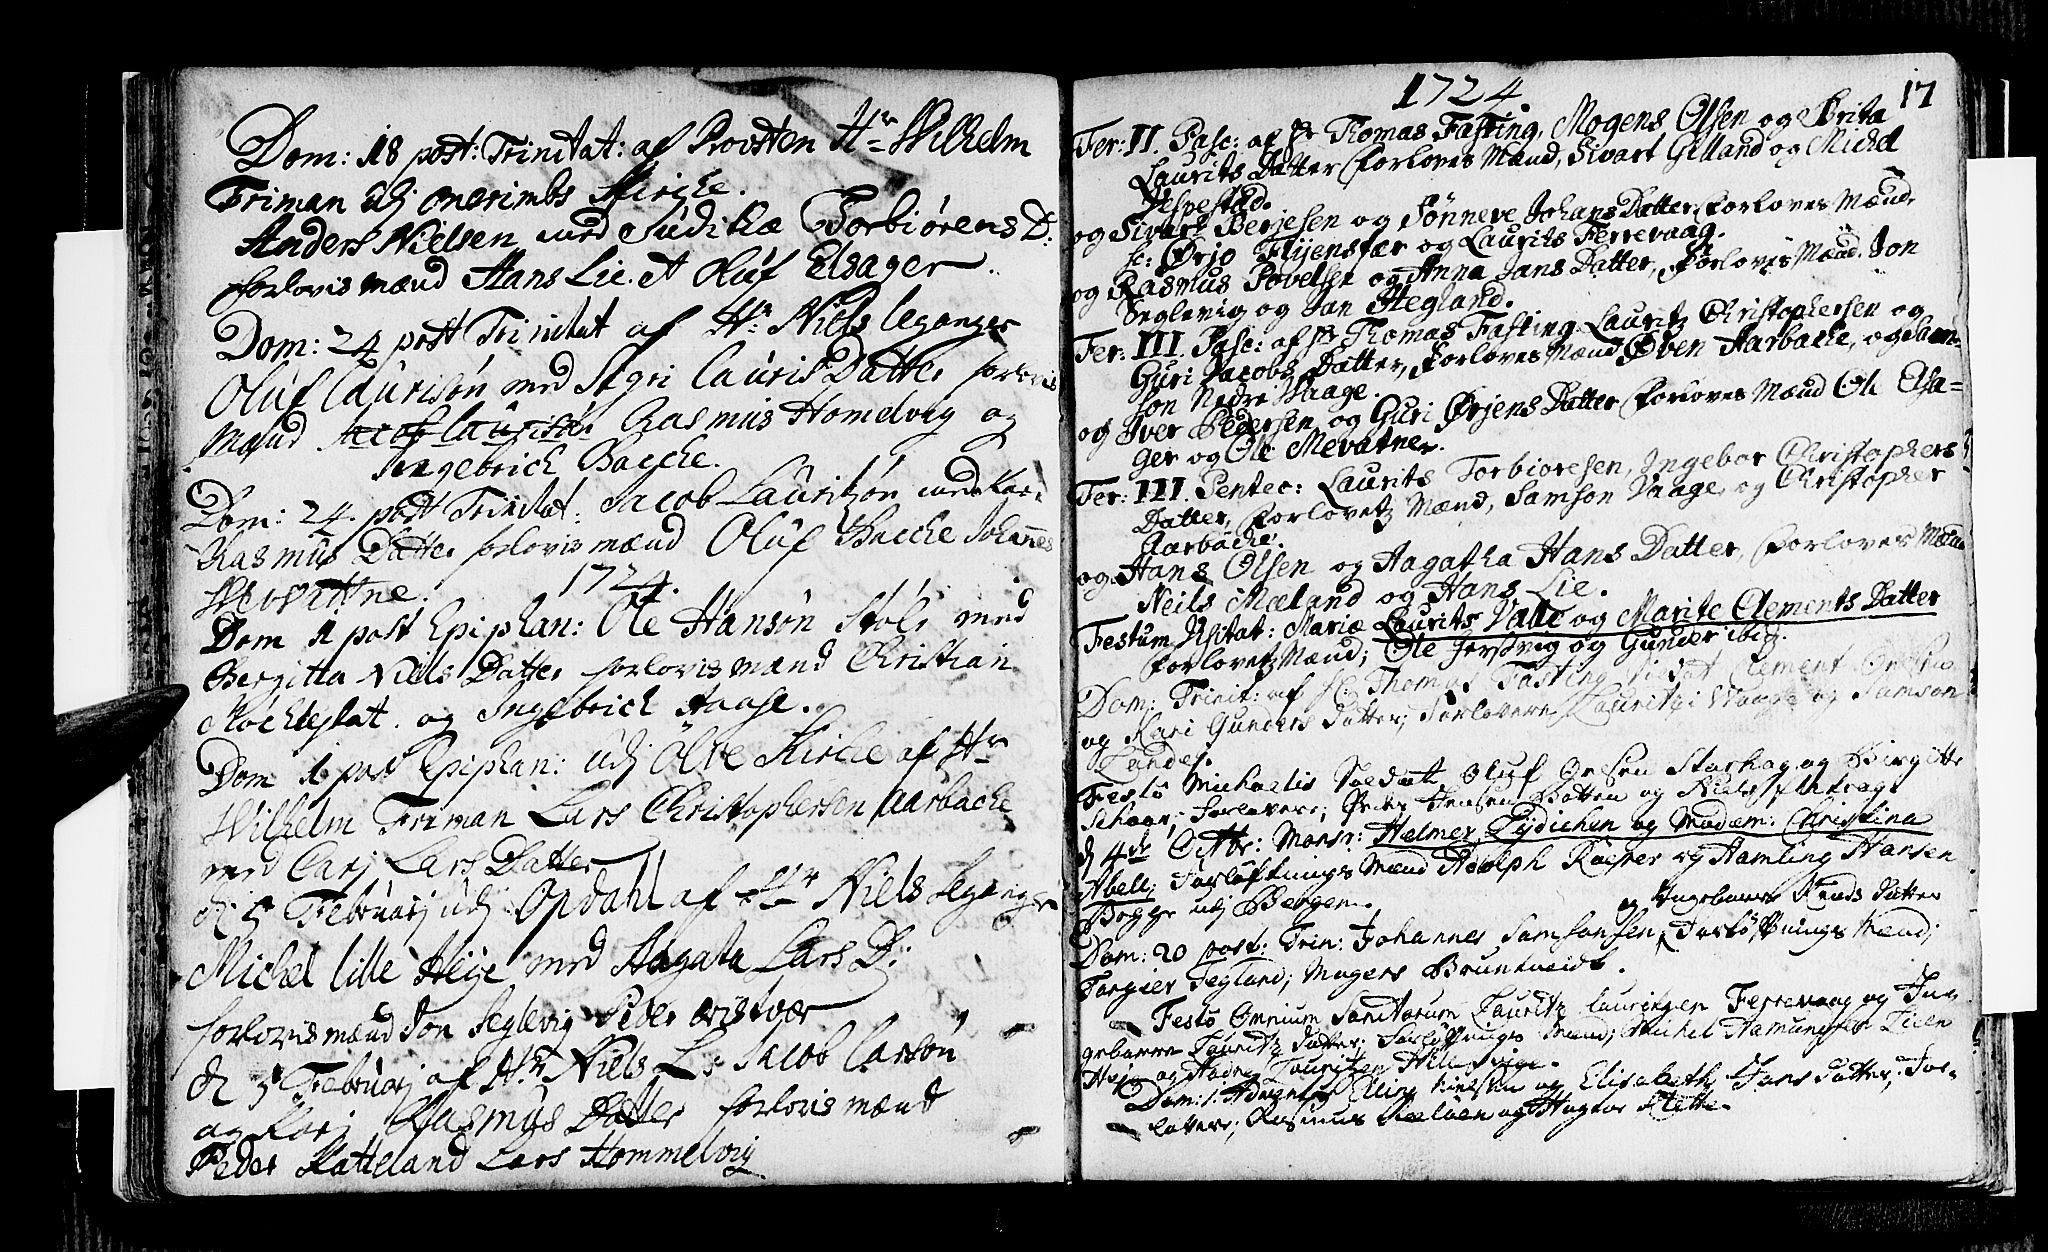 Dom: 18 post: Trinitat: af Provsten Hr Wilhelm
Friman udj Kirche.
Anders Nielsen med Judithæ Torbiørens D:
forlovis mænd Hans Lie. et Oluf Elsager.
Dom: 24 post Trinitat af Hr Niels leganger
Oluf Laurisøn med Sigri Lauris Datter forlovis
Mænd Jacob Laurisøn Rasmus Homelvig og
Ingebrick Bacche.
Dom: 24. post Trinitat: Jacob Lauritsøn med Kari
Rasmus Datter forlovis mænd Oluf Bacche Johannes
Mevattne.
1724.
Dom 1 post Epiphan: Ole Hansøn Stole med
Bergitta Niels Datter forlovis mænd Christian
og Ingebrick Haase.
Dom 1 post Epiphan: udj Ölve Kirche af Hr
Wilhelm Friman Lars Christophersen Aarbacke
med Carj Lars Datter
d: 5 Februarj udj Opdahl af Hr Niels Leganger
Michel lille Heye med Aagata Lars D:
forlovis mænd Jon Seglevig Peder
d: 5 Februarj af Hr Niels L: Jacob Larsøn
og Karj Rasmus Datter forlovis mænd
Peder Katteland Lars Hommelvig
1724. 17
Fer: II. Pasc: af Hr Thomas Fasting, Mogens Olsen og Brita
Laurits Datter, Forloves Mænd, Sivart Gilland og Michel
Vespestad.
og Sivart Berjesen og Sønneve Johans Datter, Forloves Mænd
sc: Ørjo og Laurits Ferrevaag.
og Rasmus Povelsen og Anna Jans Datter, Forloves Mænd. Jon
Seglevig og Jan Stegland.
Fer: III. Pasc: af Hr Thomas Fasting. Lauritz Christophersen og
Guri Jacobs Datter, Forloves Mænd Øven Aarbacke, og Sam-
son Nedre Vaage.
og Iver Pedersen og Guri Ørjens Datter Forloves Mænd Ole Elsa-
ger og Ole Mevatner.
Fer: III. Pentec: Laurits Torbioresen, Ingebor Christophers
Datter, Forlovetz Mænd, Samson Vaage, og Christopher
Aarbacke.
og Hans Olsen og Aagatha Hans Datter, Forloves Mænd
Neils Mæland og Hans Lie.
Festum Visitat: Mariæ Laurits Valle og Marite Clements Datter
Forlovetz Mænd; Ole Jersvig og Gunder ibid.
Dom: Trinit: af Hr Thomas Fasting Soldat Clement
og Kari Gunders Datter; Forlovere Lauritz Waage og Samson
Landes.
Festo Michaelis Soldat Oluf og Birgitte
Schaar; Forlovere; Jensen Batten og Niels
d 4de Octbr: Monsr: Helmer Lydichen og Madam: Christina
Abell; Forløftnings Mænd Adolph Kasper og Hamling Hansen
Bogge udj Bergen. og Ingebaarr Knuds Datter
Dom: 20 post: Trin: Johannes Samsonsen, Forløftnings Mænd;
Torgier Tegland; Mogens Bruntveidt.
Festo Omnium Sanctorum Lauritz Lauritzen Ferrevaag og In-
gebarre Lauritz Datter; Forløftnings Mænd; Michel Aamundsen Lien
Heje og Andre Lauritzen
Dom: 1. Advent: Elling Nielsen og Elisabeth Jans Datter; For-
lovere; Rasmus og Stette.